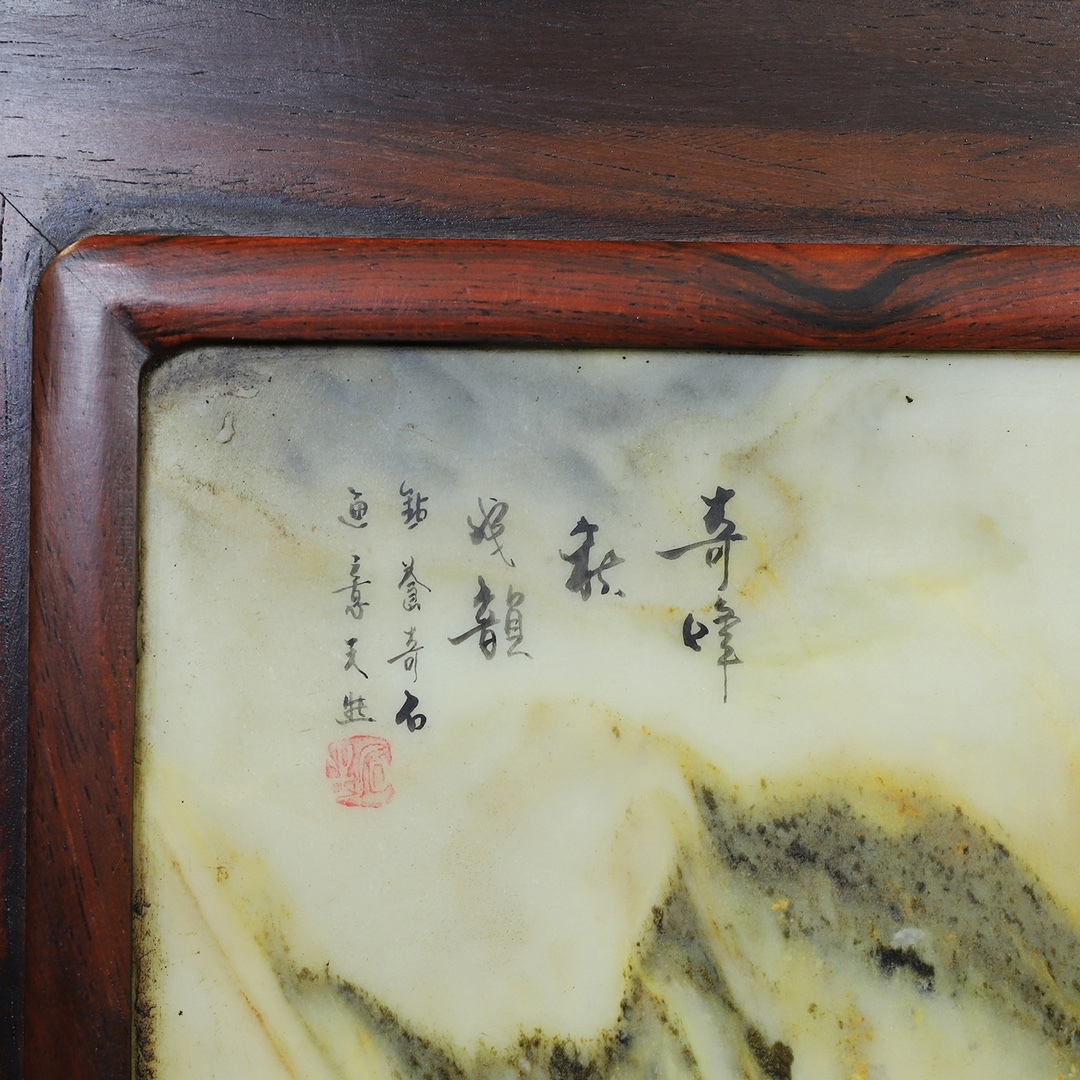 奇峰
秋
韻
點蒼奇石
意天然